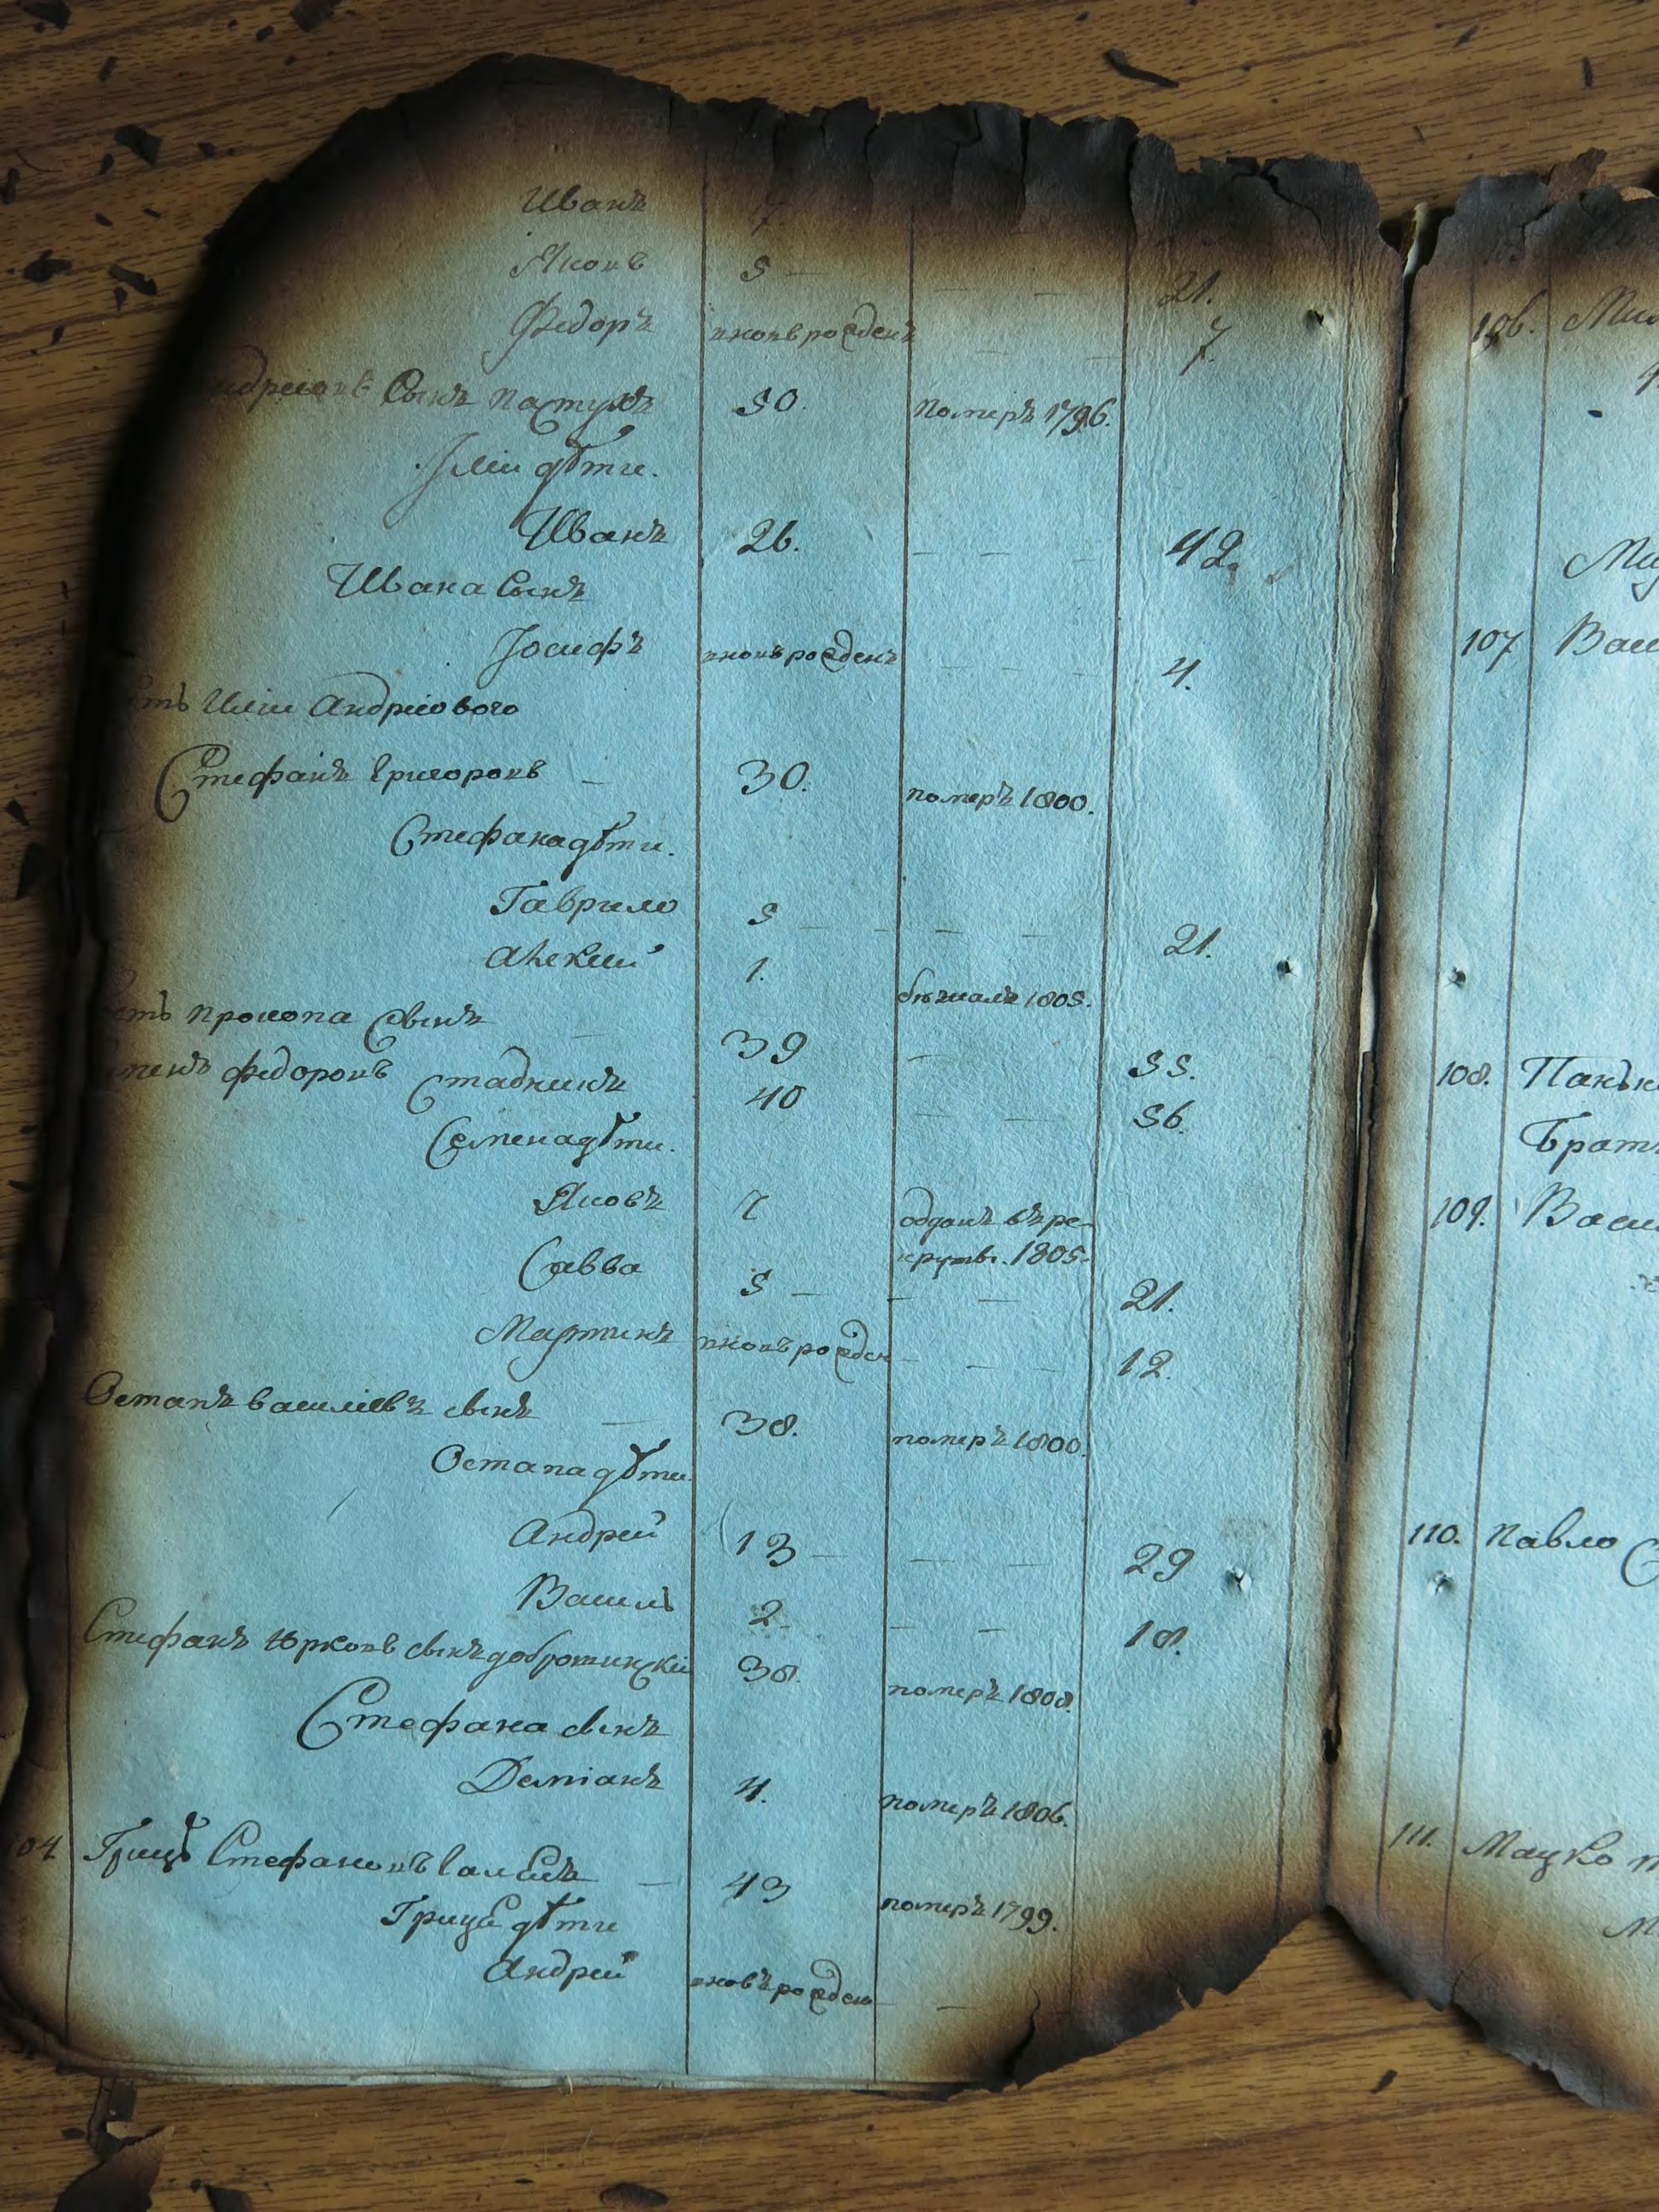 Иванъ 7
Яковъ 5 21.
Федоръ вновьрожденъ 7.
Сынъ пастухъ 50. померъ 1796.
Іліи дѣти.
Иванъ 26. 42.
Ивана Сынъ
Іосифъ вновьрожденъ 4.
Иліи Андріового
Стефанъ Григоровъ 30. померъ 1800.
Стефана дѣти.
Гаврило 5 21.
Алексій 1. бѣжалъ 1805.
Прокопа Сынъ 39 55.
Федоровъ Стадникъ 40 56.
Семена дѣти.
Яковъ 7 отданъ въ ре-
круты. 1805.
Савва 5 21.
Мартинъ вновьрожден 12.
Остапъ василіевъ сынъ 38. померъ 1800.
Остапа дѣти
Андрей 13 29
Василь 2 18.
Стефанъ Юрковъ сынъ добротинскій 38. померъ 1808.
Стефана сынъ
Деміанъ 4. померъ 1806.
104. Грицъ Стефановъ 43 померъ 1799.
Грица дѣти
Андрей вновьрожден
106.
107 Васи
108. Паньк
Братъ
109. Васи
110. Павло
111. Мацко